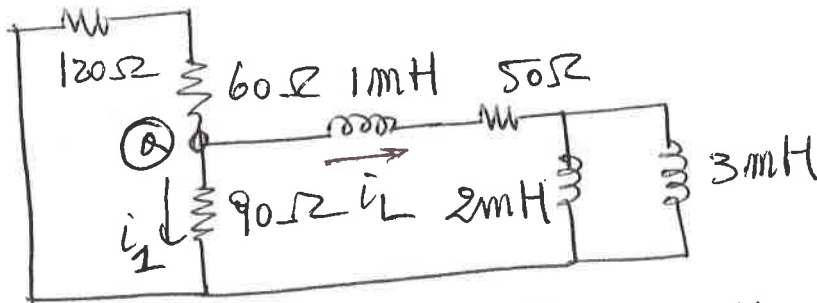 120Ω 60Ω 1mH 50Ω
a
i1 90Ω iL 2mH 3mH